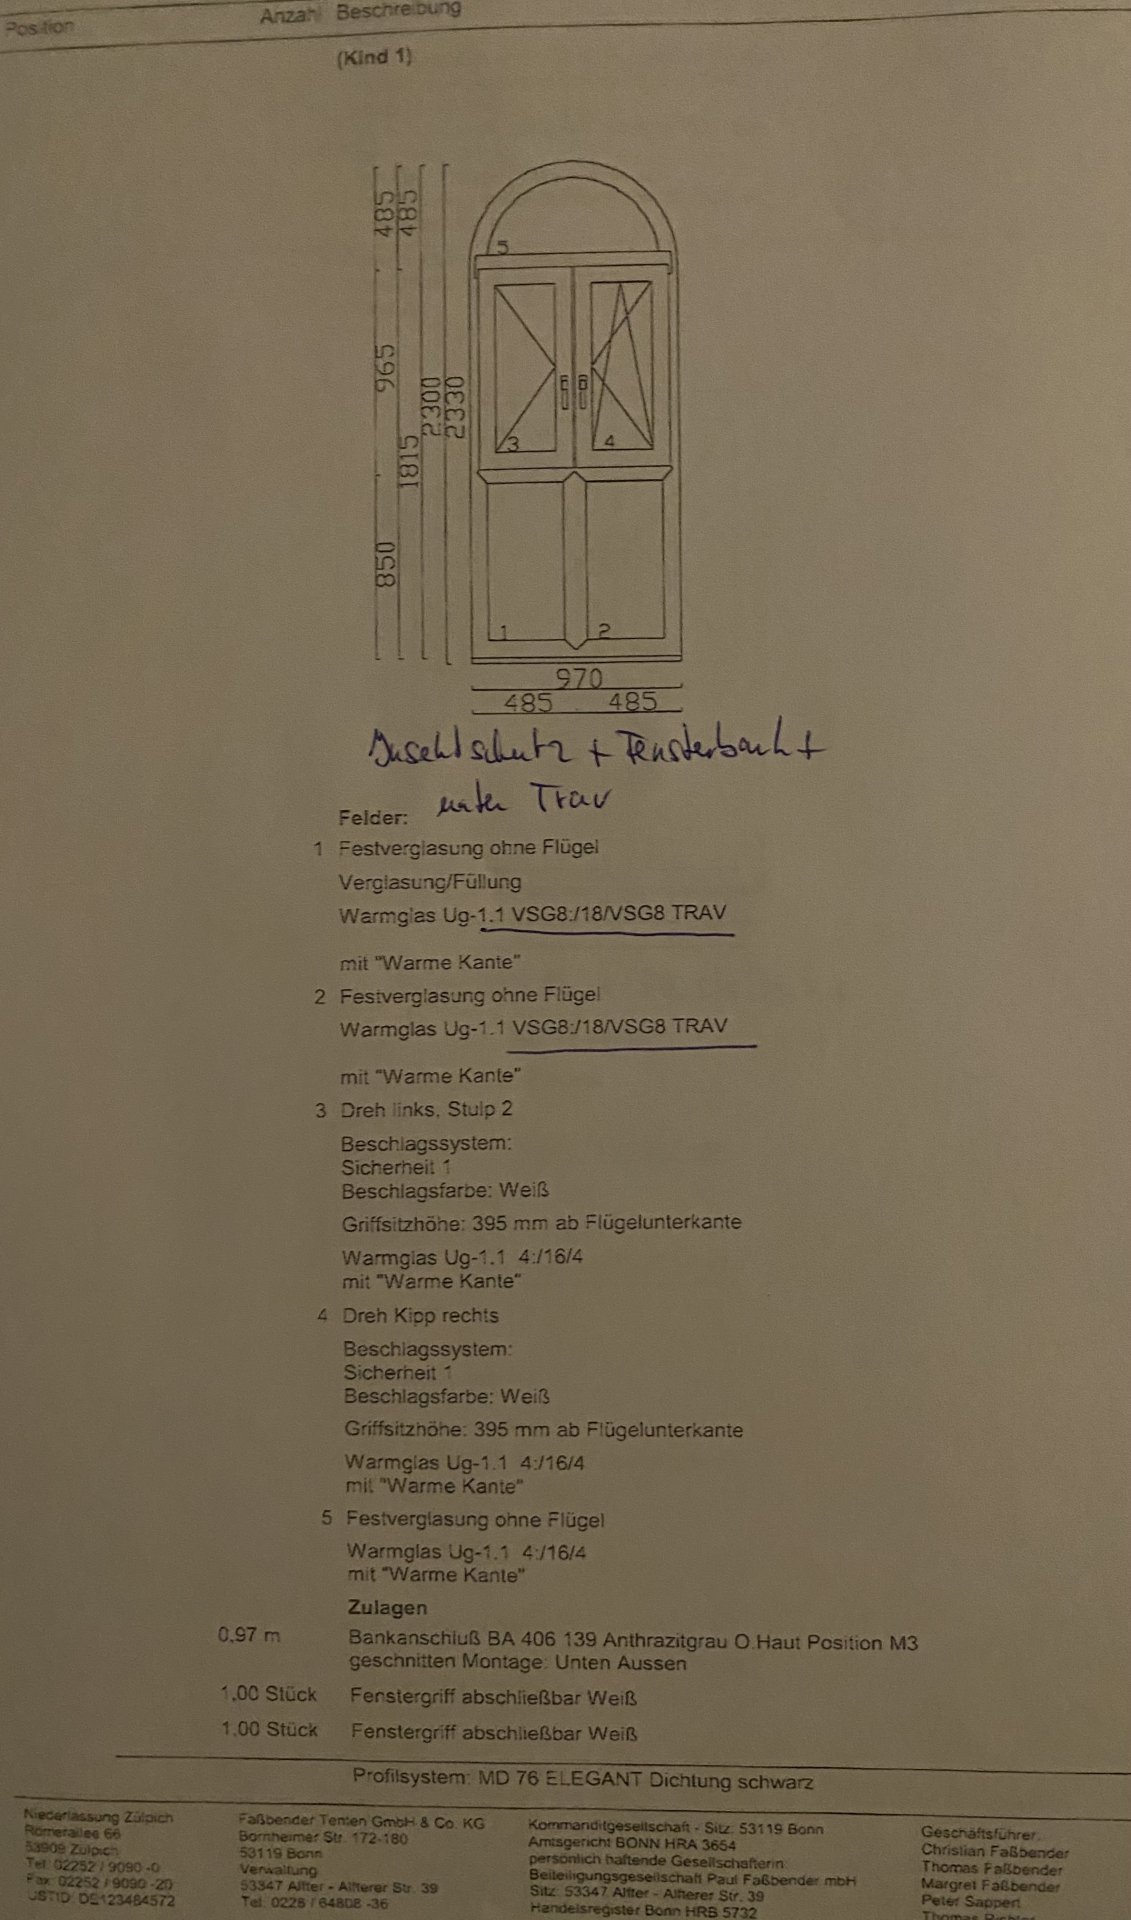 Position Anzahl Beschreibung
(Kind 1)
485
485
965
2300
2330
1815
850
5
3
4
1
2
970
485 485
Insektschutz + Fensterbank +
unten Trav
Felder:
1 Festverglasung ohne Flügel
Verglasung/Füllung
Warmglas Ug-1.1 VSG8:/18/VSG8 TRAV
mit "Warme Kante"
2 Festverglasung ohne Flügel
Warmglas Ug-1.1 VSG8:/18/VSG8 TRAV
mit "Warme Kante"
3 Dreh links, Stulp 2
Beschlagssystem:
Sicherheit 1
Beschlagsfarbe: Weiß
Griffsitzhöhe: 395 mm ab Flügelunterkante
Warmglas Ug-1.1 4:/16/4
mit "Warme Kante"
4 Dreh Kipp rechts
Beschlagssystem:
Sicherheit 1
Beschlagsfarbe: Weiß
Griffsitzhöhe: 395 mm ab Flügelunterkante
Warmglas Ug-1.1 4:/16/4
mit "Warme Kante"
5 Festverglasung ohne Flügel
Warmglas Ug-1.1 4:/16/4
mit "Warme Kante"
Zulagen
0,97 m Bankanschluß BA 406 139 Anthrazitgrau O.Haut Position M3
geschnitten Montage: Unten Aussen
1,00 Stück Fenstergriff abschließbar Weiß
1,00 Stück Fenstergriff abschließbar Weiß
Profilsystem: MD 76 ELEGANT Dichtung schwarz
Niederlassung Zülpich
Römerallee 66
53909 Zülpich
Tel: 02252 / 9090 -0
Fax: 02252 / 9090 -20
USTID: DE123484572
Faßbender Tenten GmbH & Co. KG
Bornheimer Str. 172-180
53119 Bonn
Verwaltung
53347 Alfter - Alfterer Str. 39
Tel: 0228 / 64808 -36
Kommanditgesellschaft - Sitz: 53119 Bonn
Amtsgericht BONN HRA 3654
persönlich haftende Gesellschafterin:
Beteiligungsgesellschaft Paul Faßbender mbH
Sitz: 53347 Alfter - Alfterer Str. 39
Handelsregister Bonn HRB 5732
Geschäftsführer:
Christian Faßbender
Thomas Faßbender
Margret Faßbender
Peter Sappert
Thomas